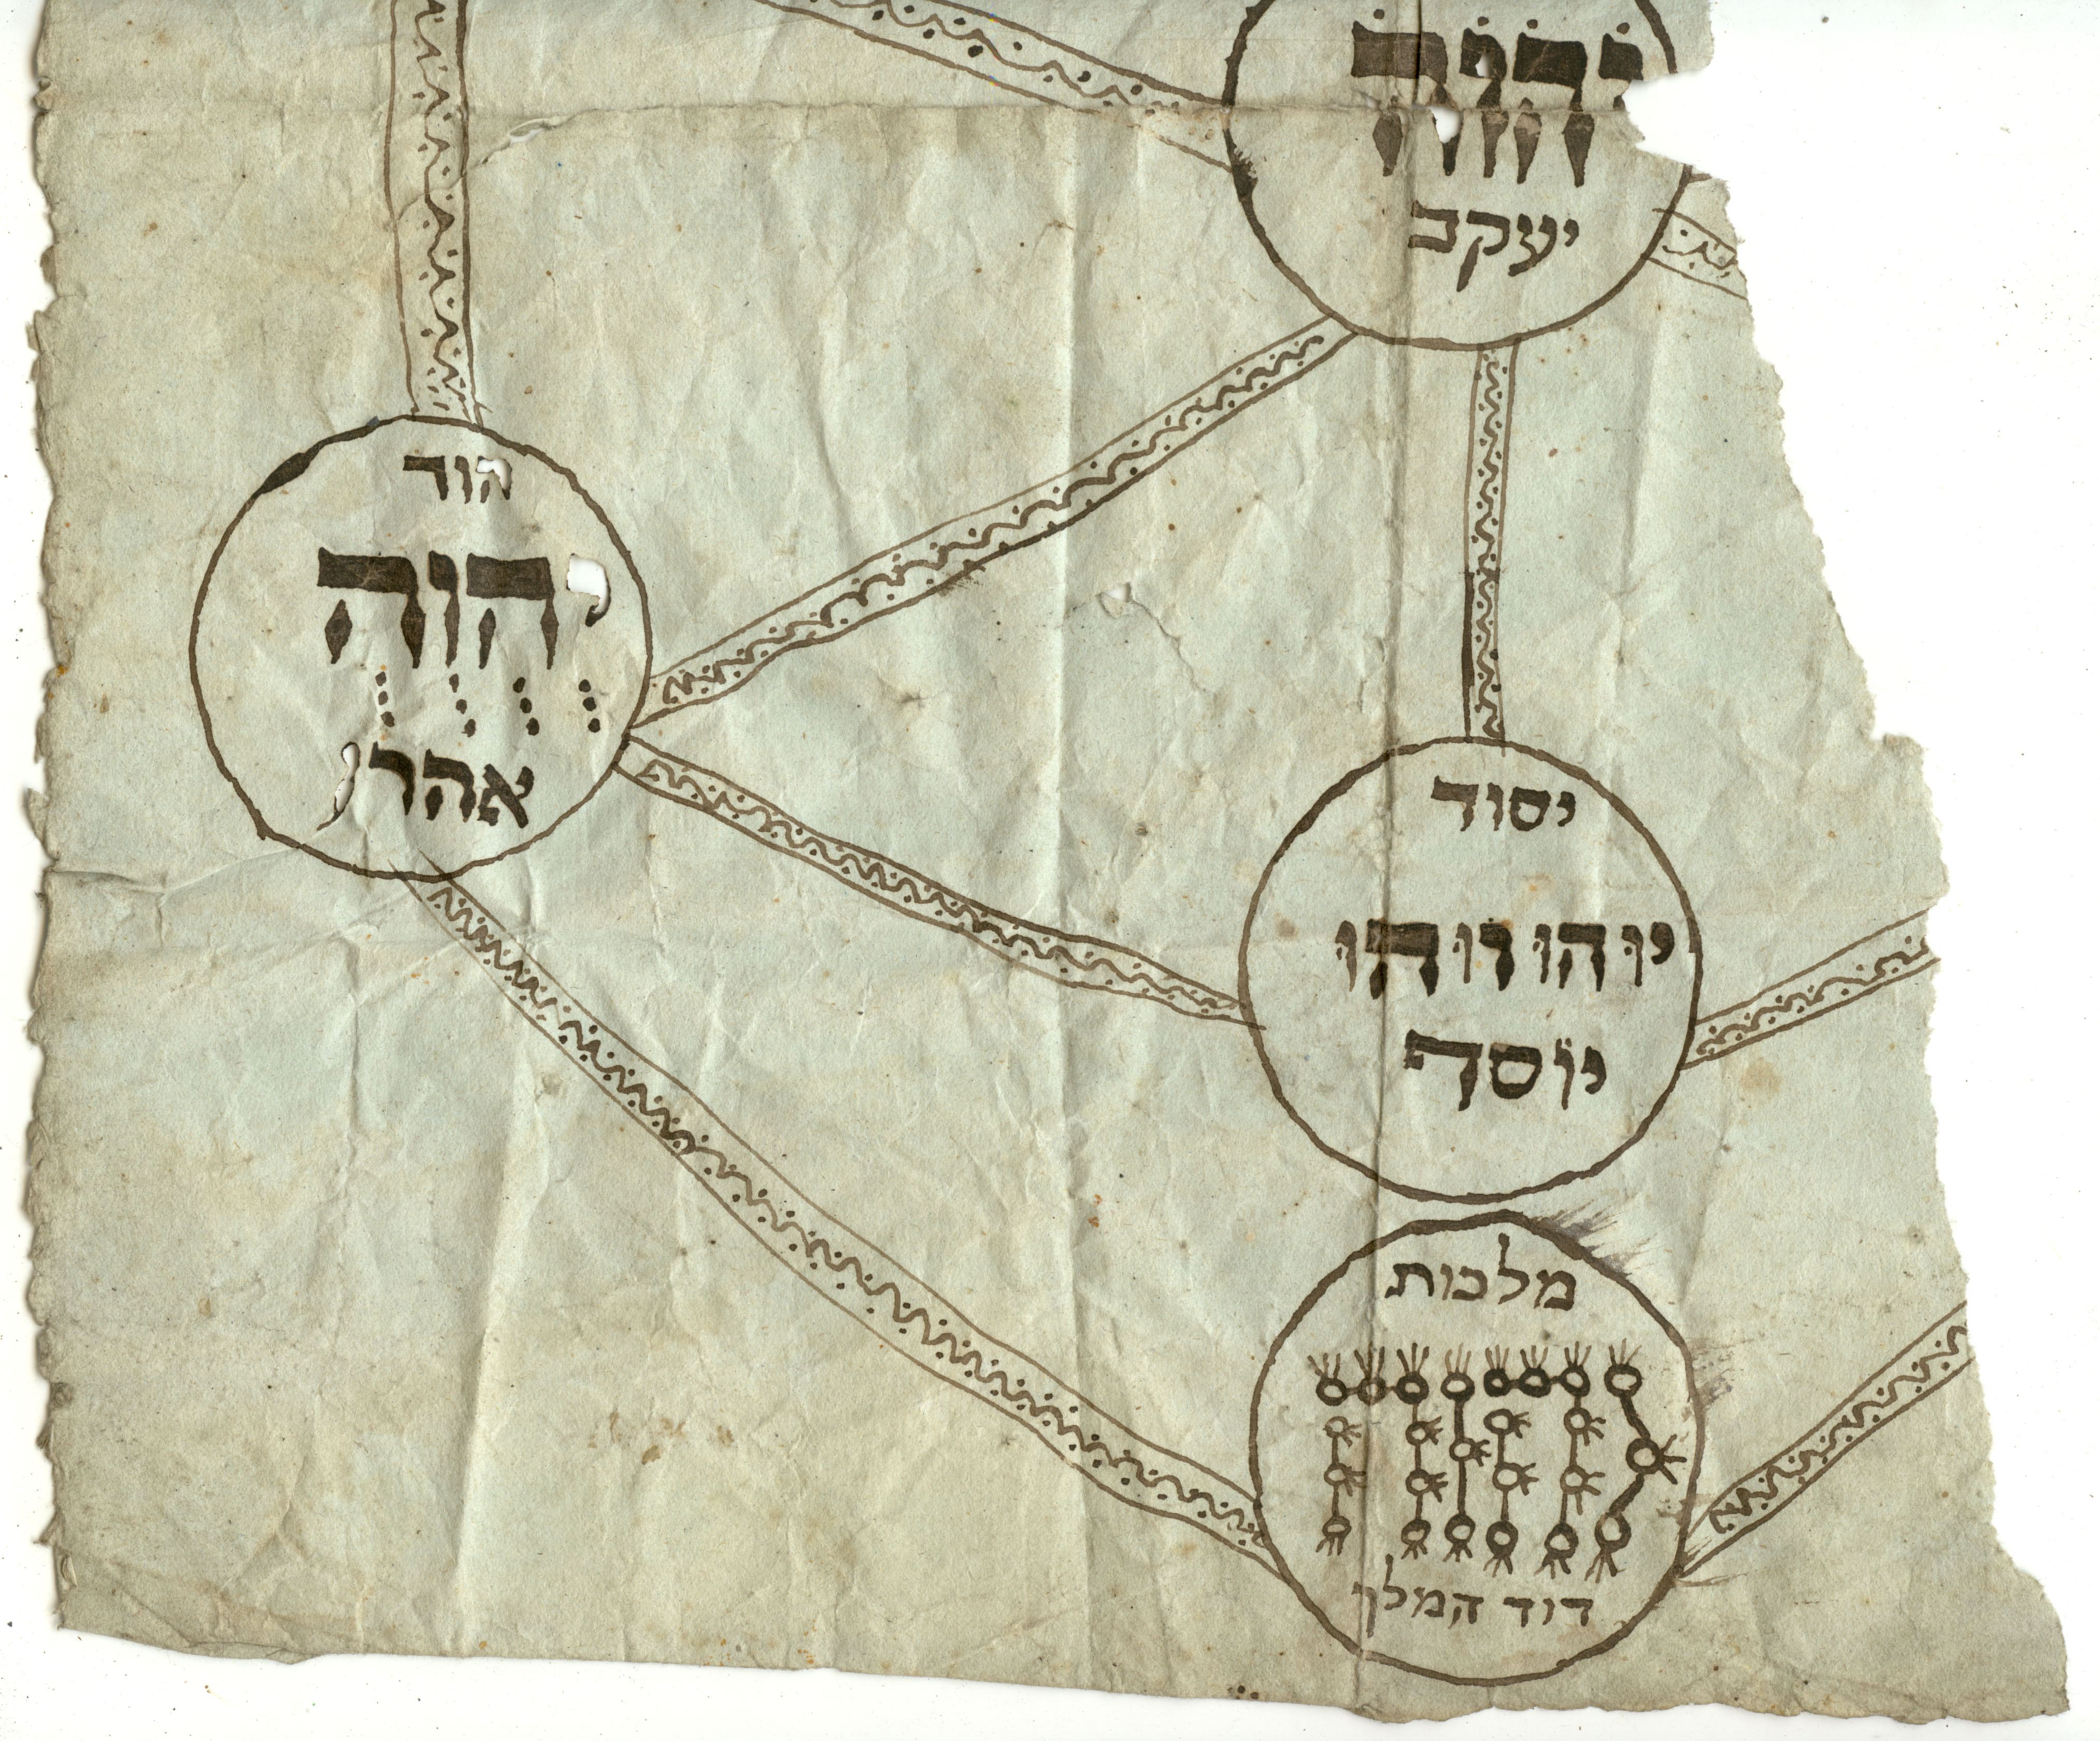 יֹהֹוֹהֹ
יעקב
הוד
יֻהֻוֻהֻ
אהרן
יסוד
יוּהוּווּהוּ
יוסף
מלכות
דוד המלך